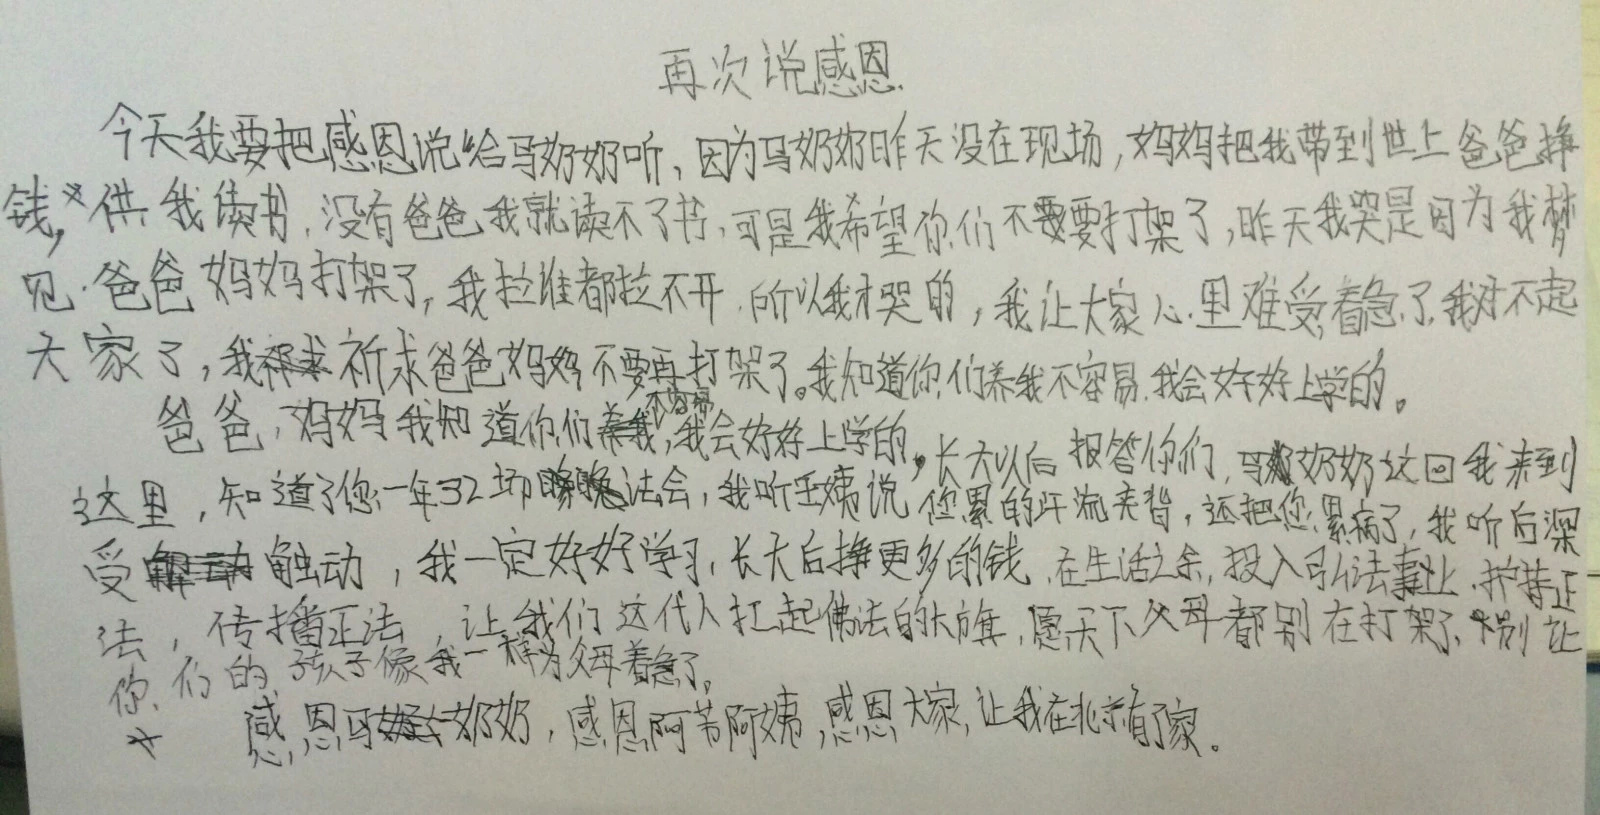 再次说感恩
今天我要把感恩说给马奶奶听、因为马奶奶昨天没在现场，妈妈把我带到世上爸爸挣
钱，供我读书、没有爸爸我就读不了书、可是我希望你们不要打架了，昨天我哭是因为我梦
见爸爸妈妈打架了，我拉谁都拉不开、所以我才哭的，我让大家心里难受，着急了，我对不起
大家了，我祈求爸爸妈妈不要再打架了。我知道你们养我不容易、我会好好上学的。
爸爸，妈妈我知道你们不容易，我会好好上学的，长大以后报答你们，马奶奶这回我来到
这里，知道了您一年32场法会，我听王姨说您累的汗流夹背，还把您累病了，我听后深
受触动，我一定好好学习、长大后挣更多的钱、在生活之余，投入弘法事业、护持正
法，传播正法，让我们这代人扛起佛法的大旗、愿天下父母都别在打架了、别让
你们的孩子像我一样为父母着急了。
感恩马奶奶，感恩阿芳阿姨，感恩大家，让我在北京有了家。